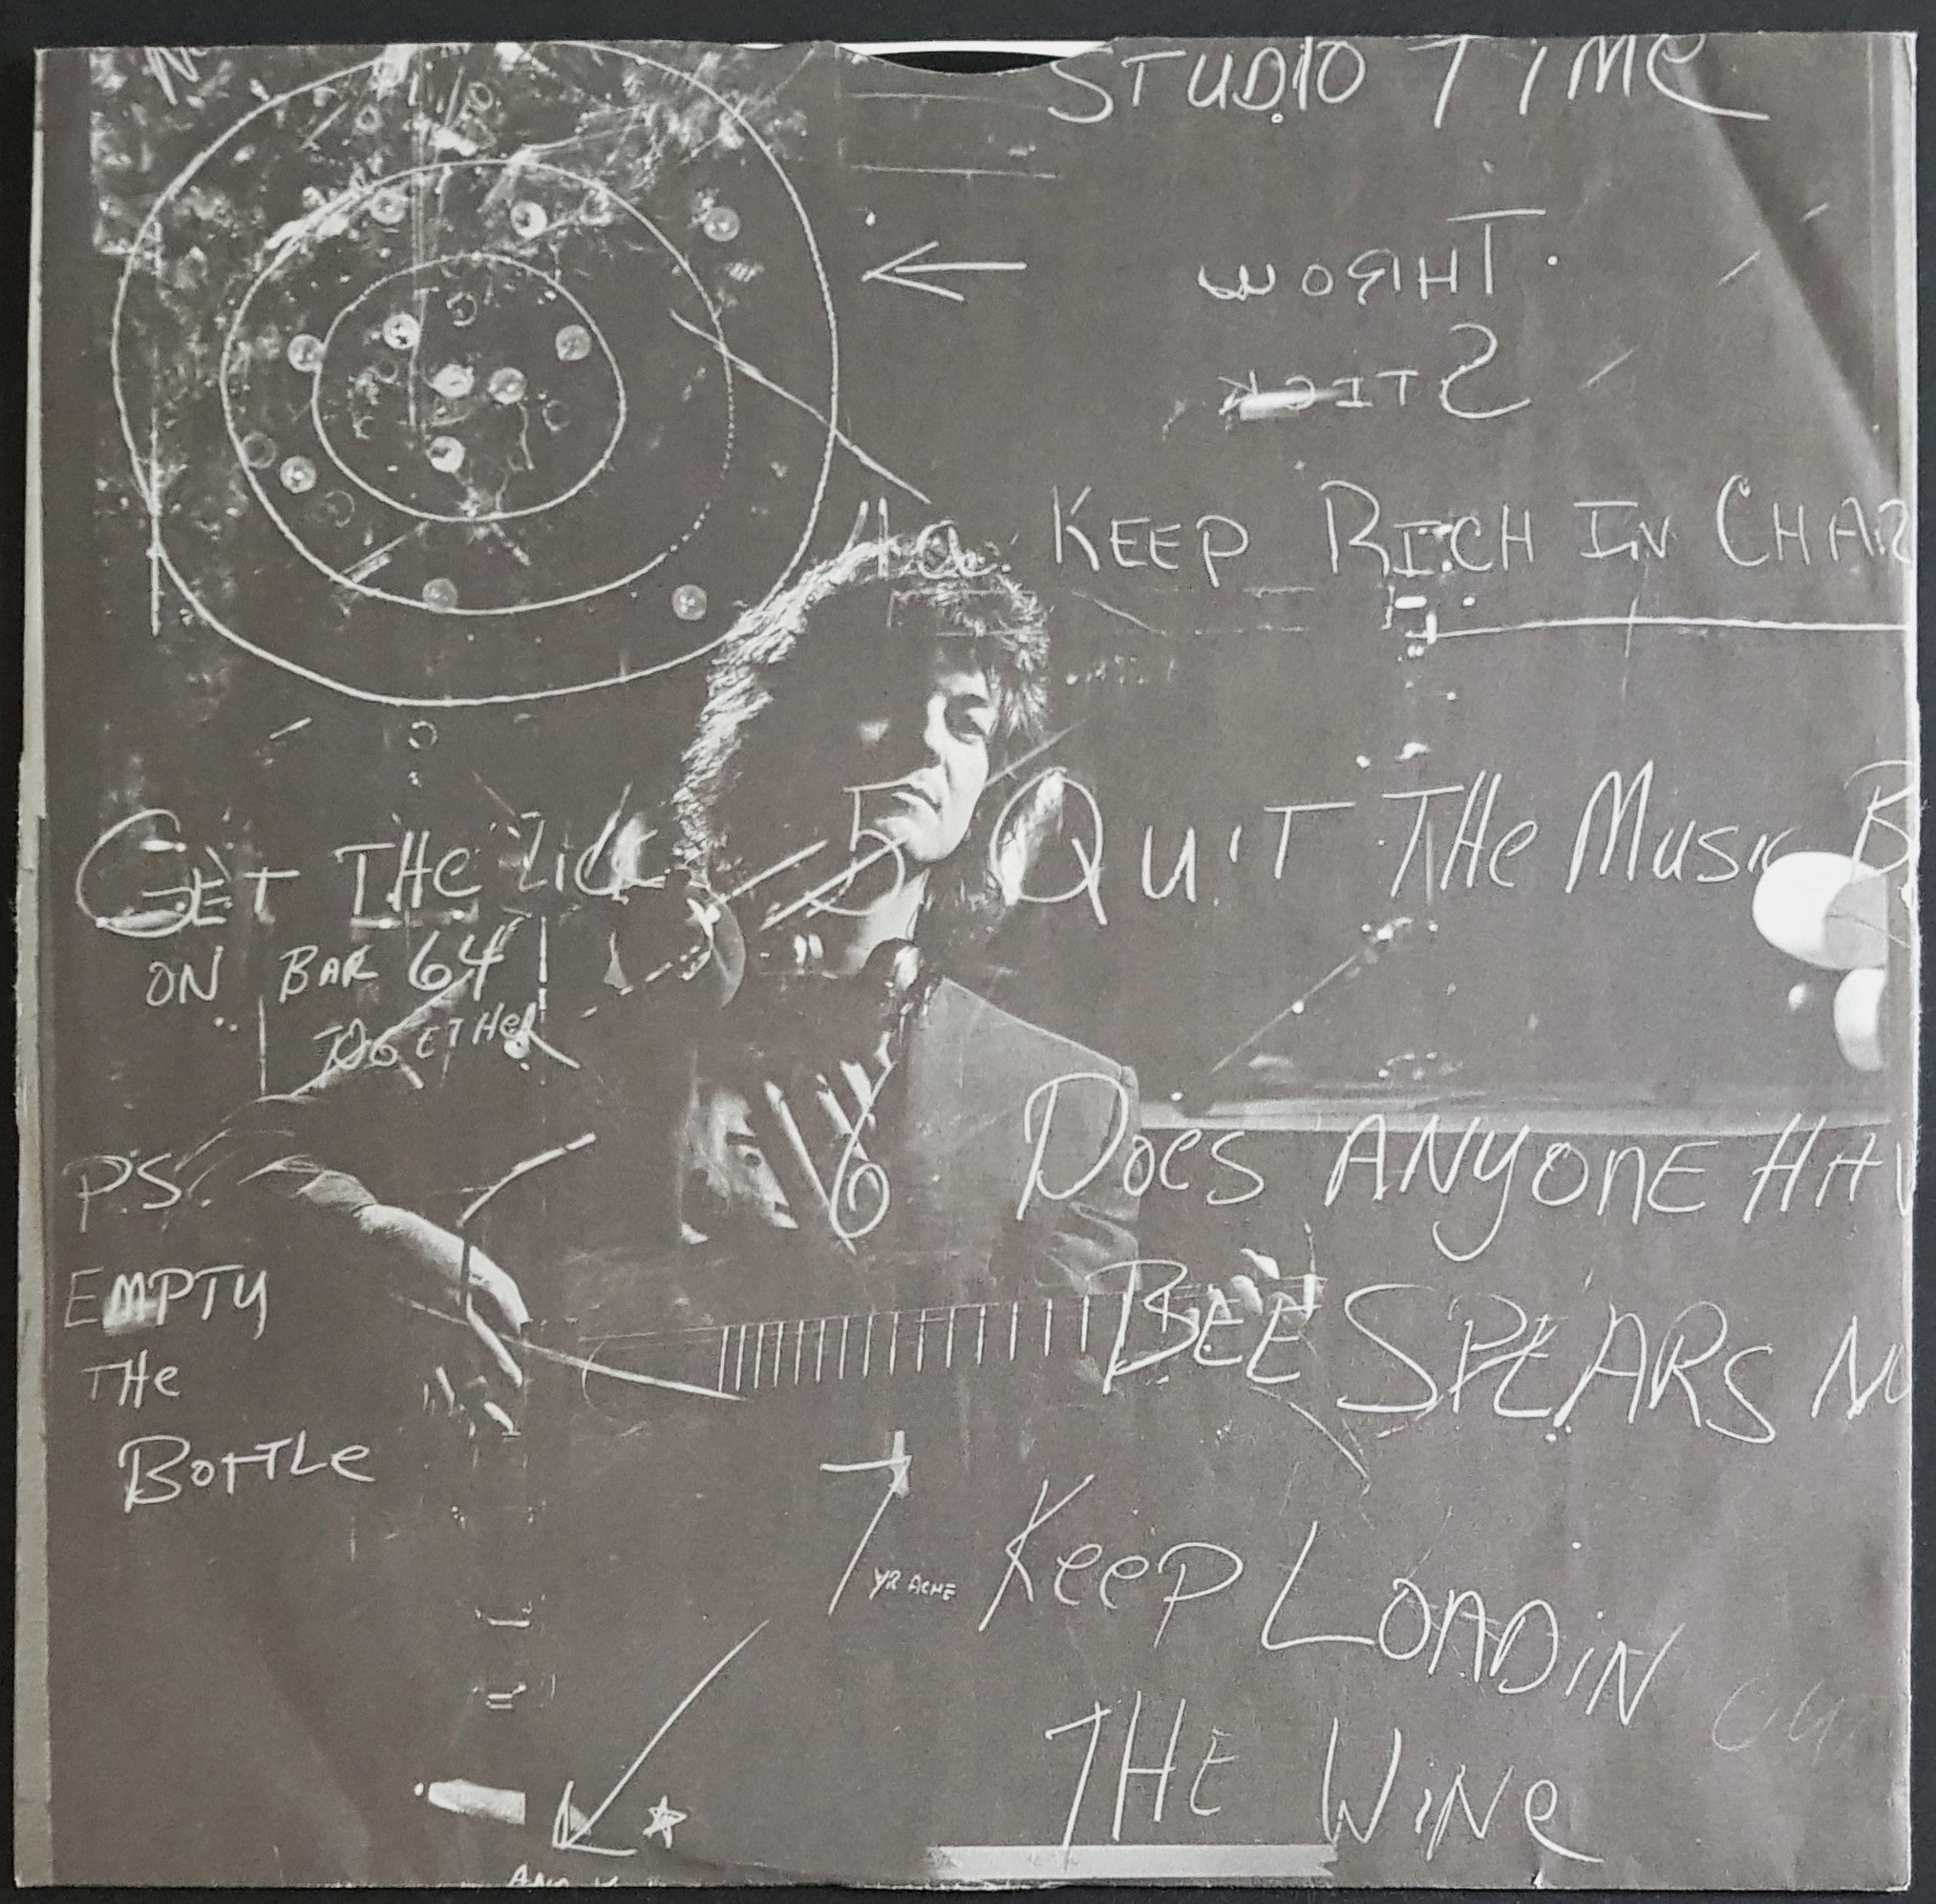 STUDIO TIME
THROW
STICK
4a. KEEP RICH IN CHAR
5 QUIT THE MUSIC B
GET THE LICK
ON BAR 64
TOGETHER
6 DOES ANYONE HAV
BEE SPEARS NU
P.S.
EMPTY
THE
BOTTLE
7 KEEP LOADIN
YR ACHE
THE WINE